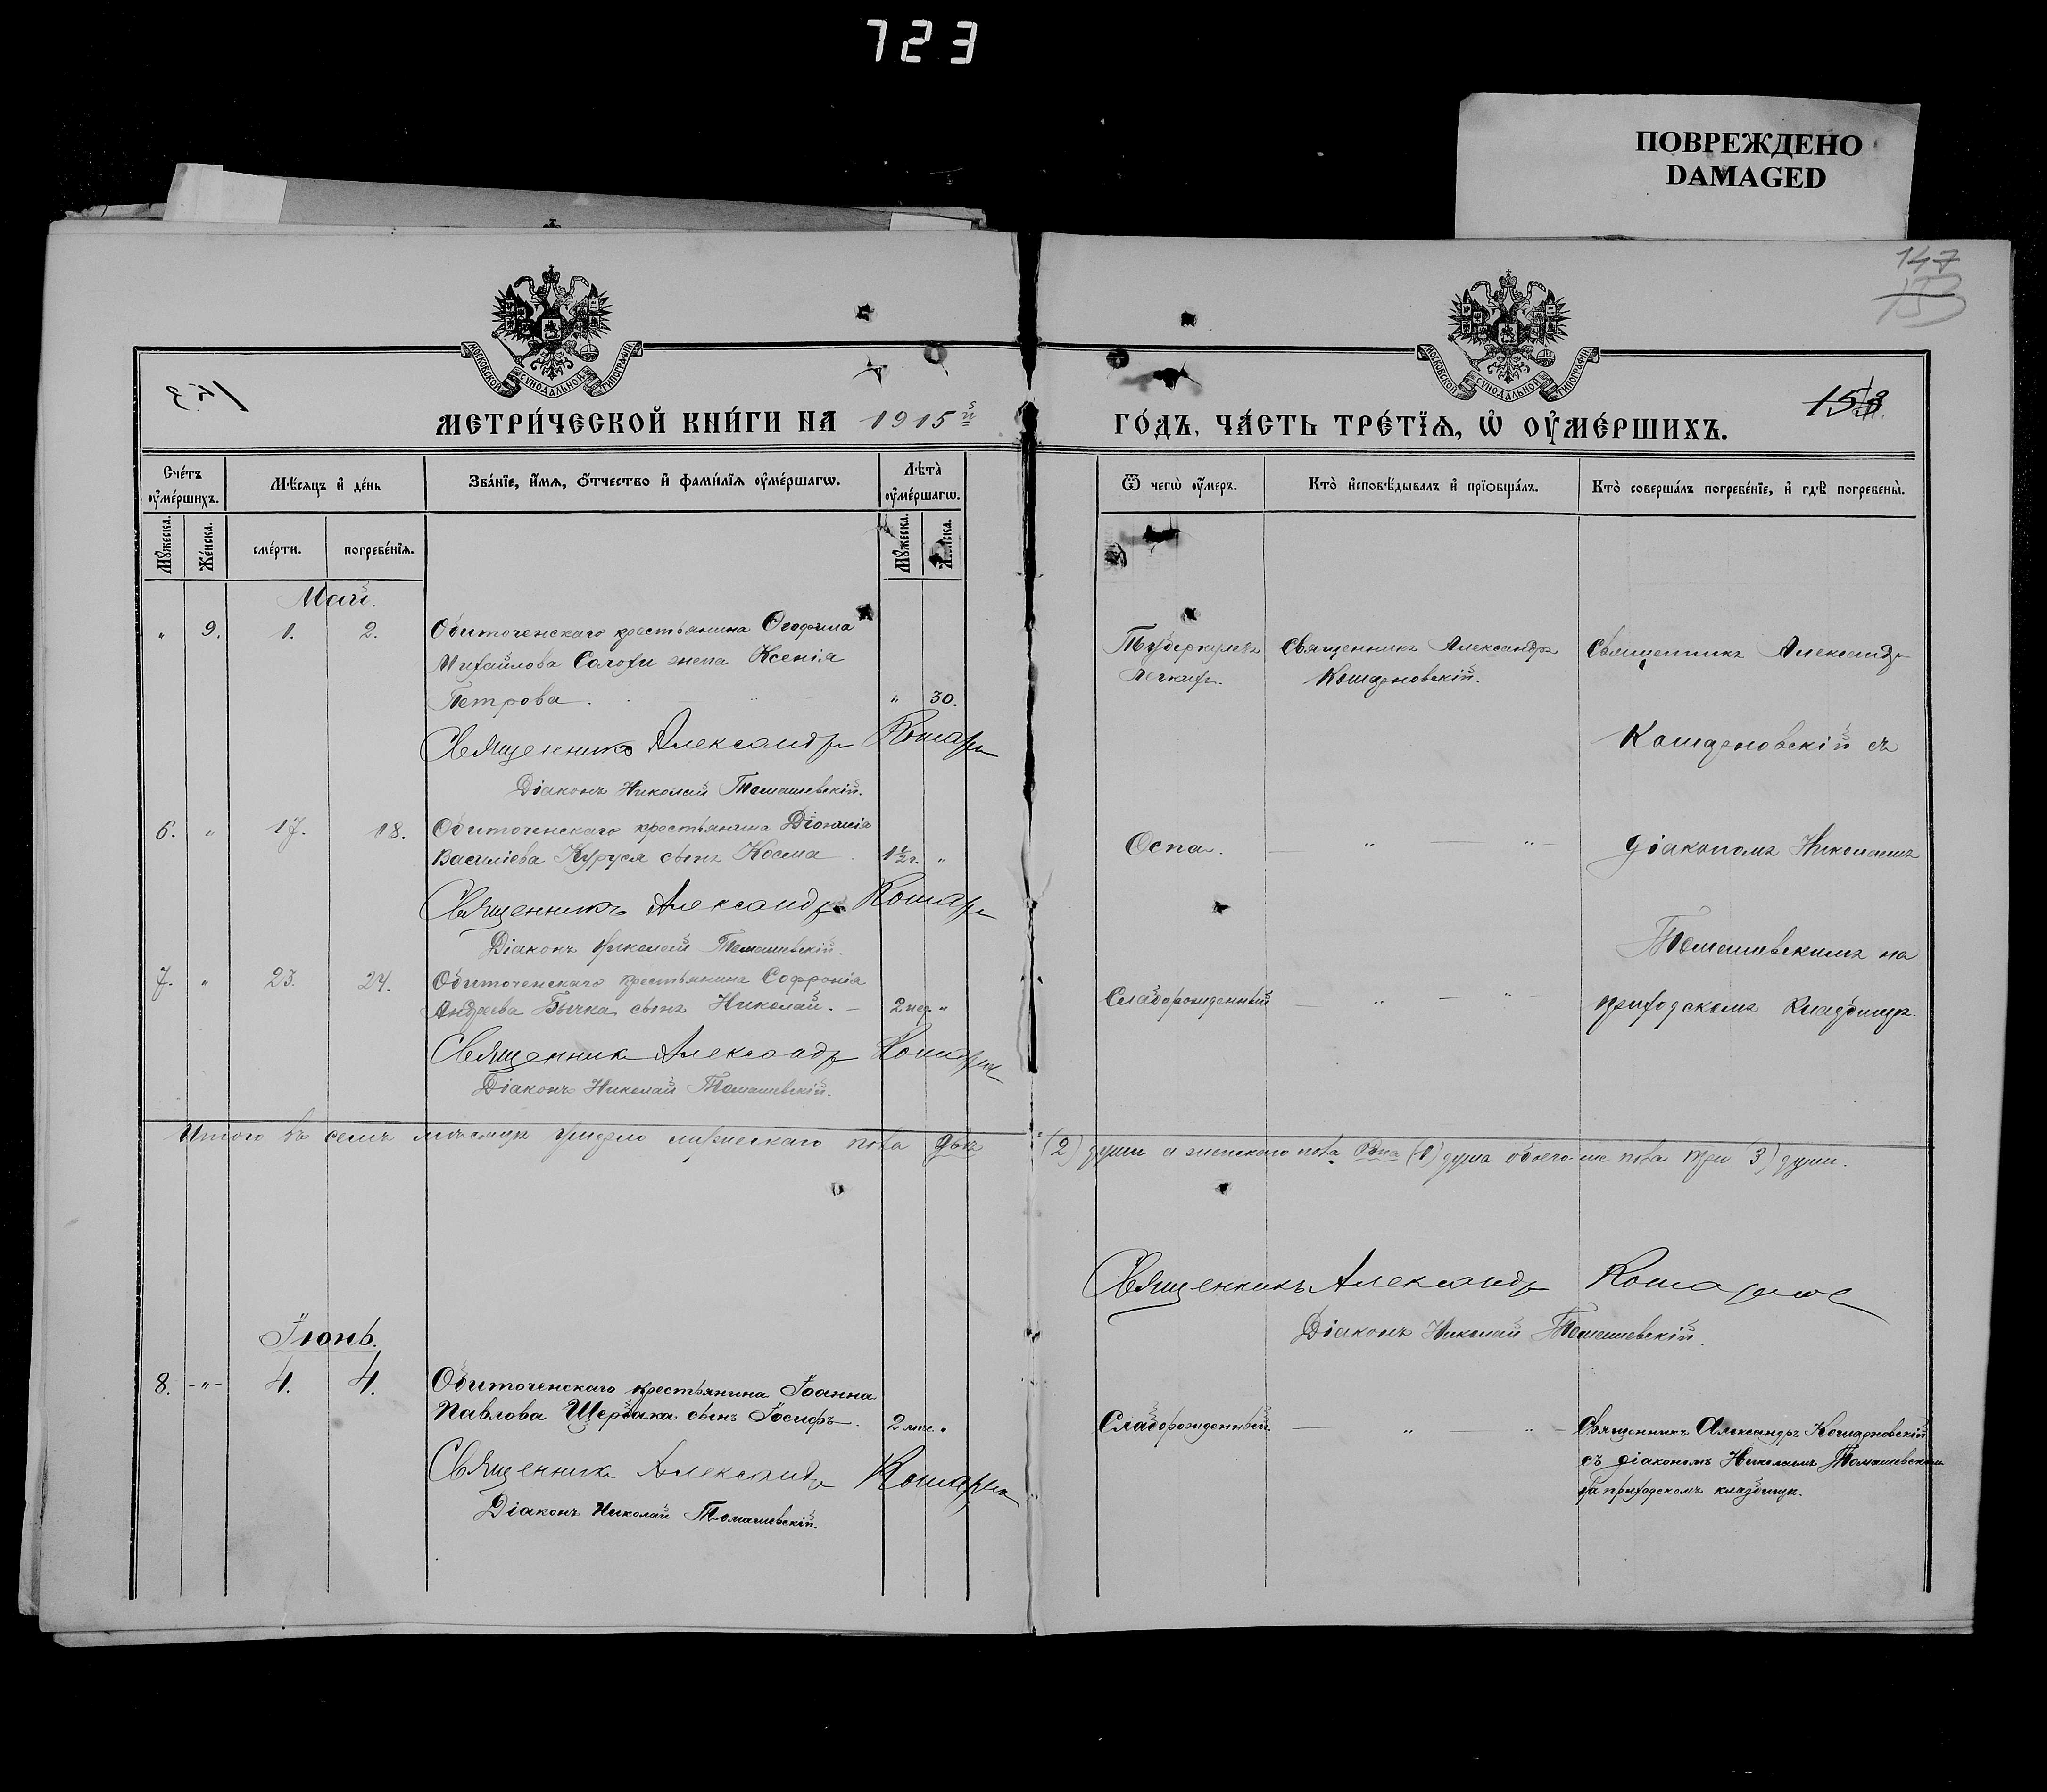 723
ПОВРЕЖДЕНО
DAMAGED
147
153
МОСКОВСКОЙ СУНОДАЛЬНОЙ ТИПОГРАФІИ
МОСКОВСКОЙ СУНОДАЛЬНОЙ ТИПОГРАФІИ
153
МЕТРИ́ЧЕСКОЙ КНИ́ГИ НА 1915й
ГО́ДЪ, ЧА́СТЬ ТРЕ́ТЇѦ, Ѡ҆ ОУ҆МЕ́РШИХЪ.
Сче́тъ оу҆ме́ршихъ.
Мѣ́сяцъ и҆ де́нь
Зва́нїе, и҆́мѧ, о҆́тчество и҆ фами́лїѧ оу҆ме́ршагѡ.
Лѣ́та оу҆ме́ршагѡ.
Ѿ чегѡ̀ оу҆́меръ.
Кто̀ и҆сповѣ́дывалъ и҆ прїѡбща́лъ.
Кто̀ соверша́лъ погребе́нїе, и҆ гдѣ̀ погребены̀.
Мꙋ́жеска.
Же́нска.
сме́рти.
погребе́нїѧ.
Мꙋ́жеска.
Же́нска.
Май.
" 9. 1. 2. Обиточенскаго крестьянина Ѳеофила
Михайлова Солохи жена Ксенія
Петрова. " 30.
Туберкулезъ
легкихъ.
Священникъ Александръ
Кошарновскій.
Священникъ Александръ
Священникъ Александръ Кошарн
Кошарновскій съ
Діаконъ Николай Томашевскій.
6. " 17. 18. Обиточенскаго крестьянина Діонисія
Василіева Куруся сынъ Косма 1½ г. "
Оспа. — " — " —
діакономъ Николаемъ
Священникъ Александръ Кошарн
Томашевскимъ на
Діаконъ Николай Томашевскій.
7. " 23. 24. Обиточенскаго крестьянина Софронія
Андреева Бычка сынъ Николай. — 2 нед. "
Слаборожденный — " — " —
приходскомъ кладбищѣ.
Священникъ Александръ Кошарн
Діаконъ Николай Томашевскій.
Итого въ семъ мѣсяцѣ умерло мужескаго пола двѣ (2) души а женскаго пола одна (1) душа обоего-же пола три (3) души.
Священникъ Александръ Кошарнов
Діаконъ Николай Томашевскій.
Іюнь.
8. -"- 4. 4. Обиточенскаго крестьянина Іоанна
Павлова Щербака сынъ Іосифъ. 2 мѣс. "
Слаборожденный. — " — " —
Священникъ Александръ Кошарновскій
съ діакономъ Николаемъ Томашевскимъ
на приходскомъ кладбищѣ.
Священникъ Александръ Кошарн
Діаконъ Николай Томашевскій.